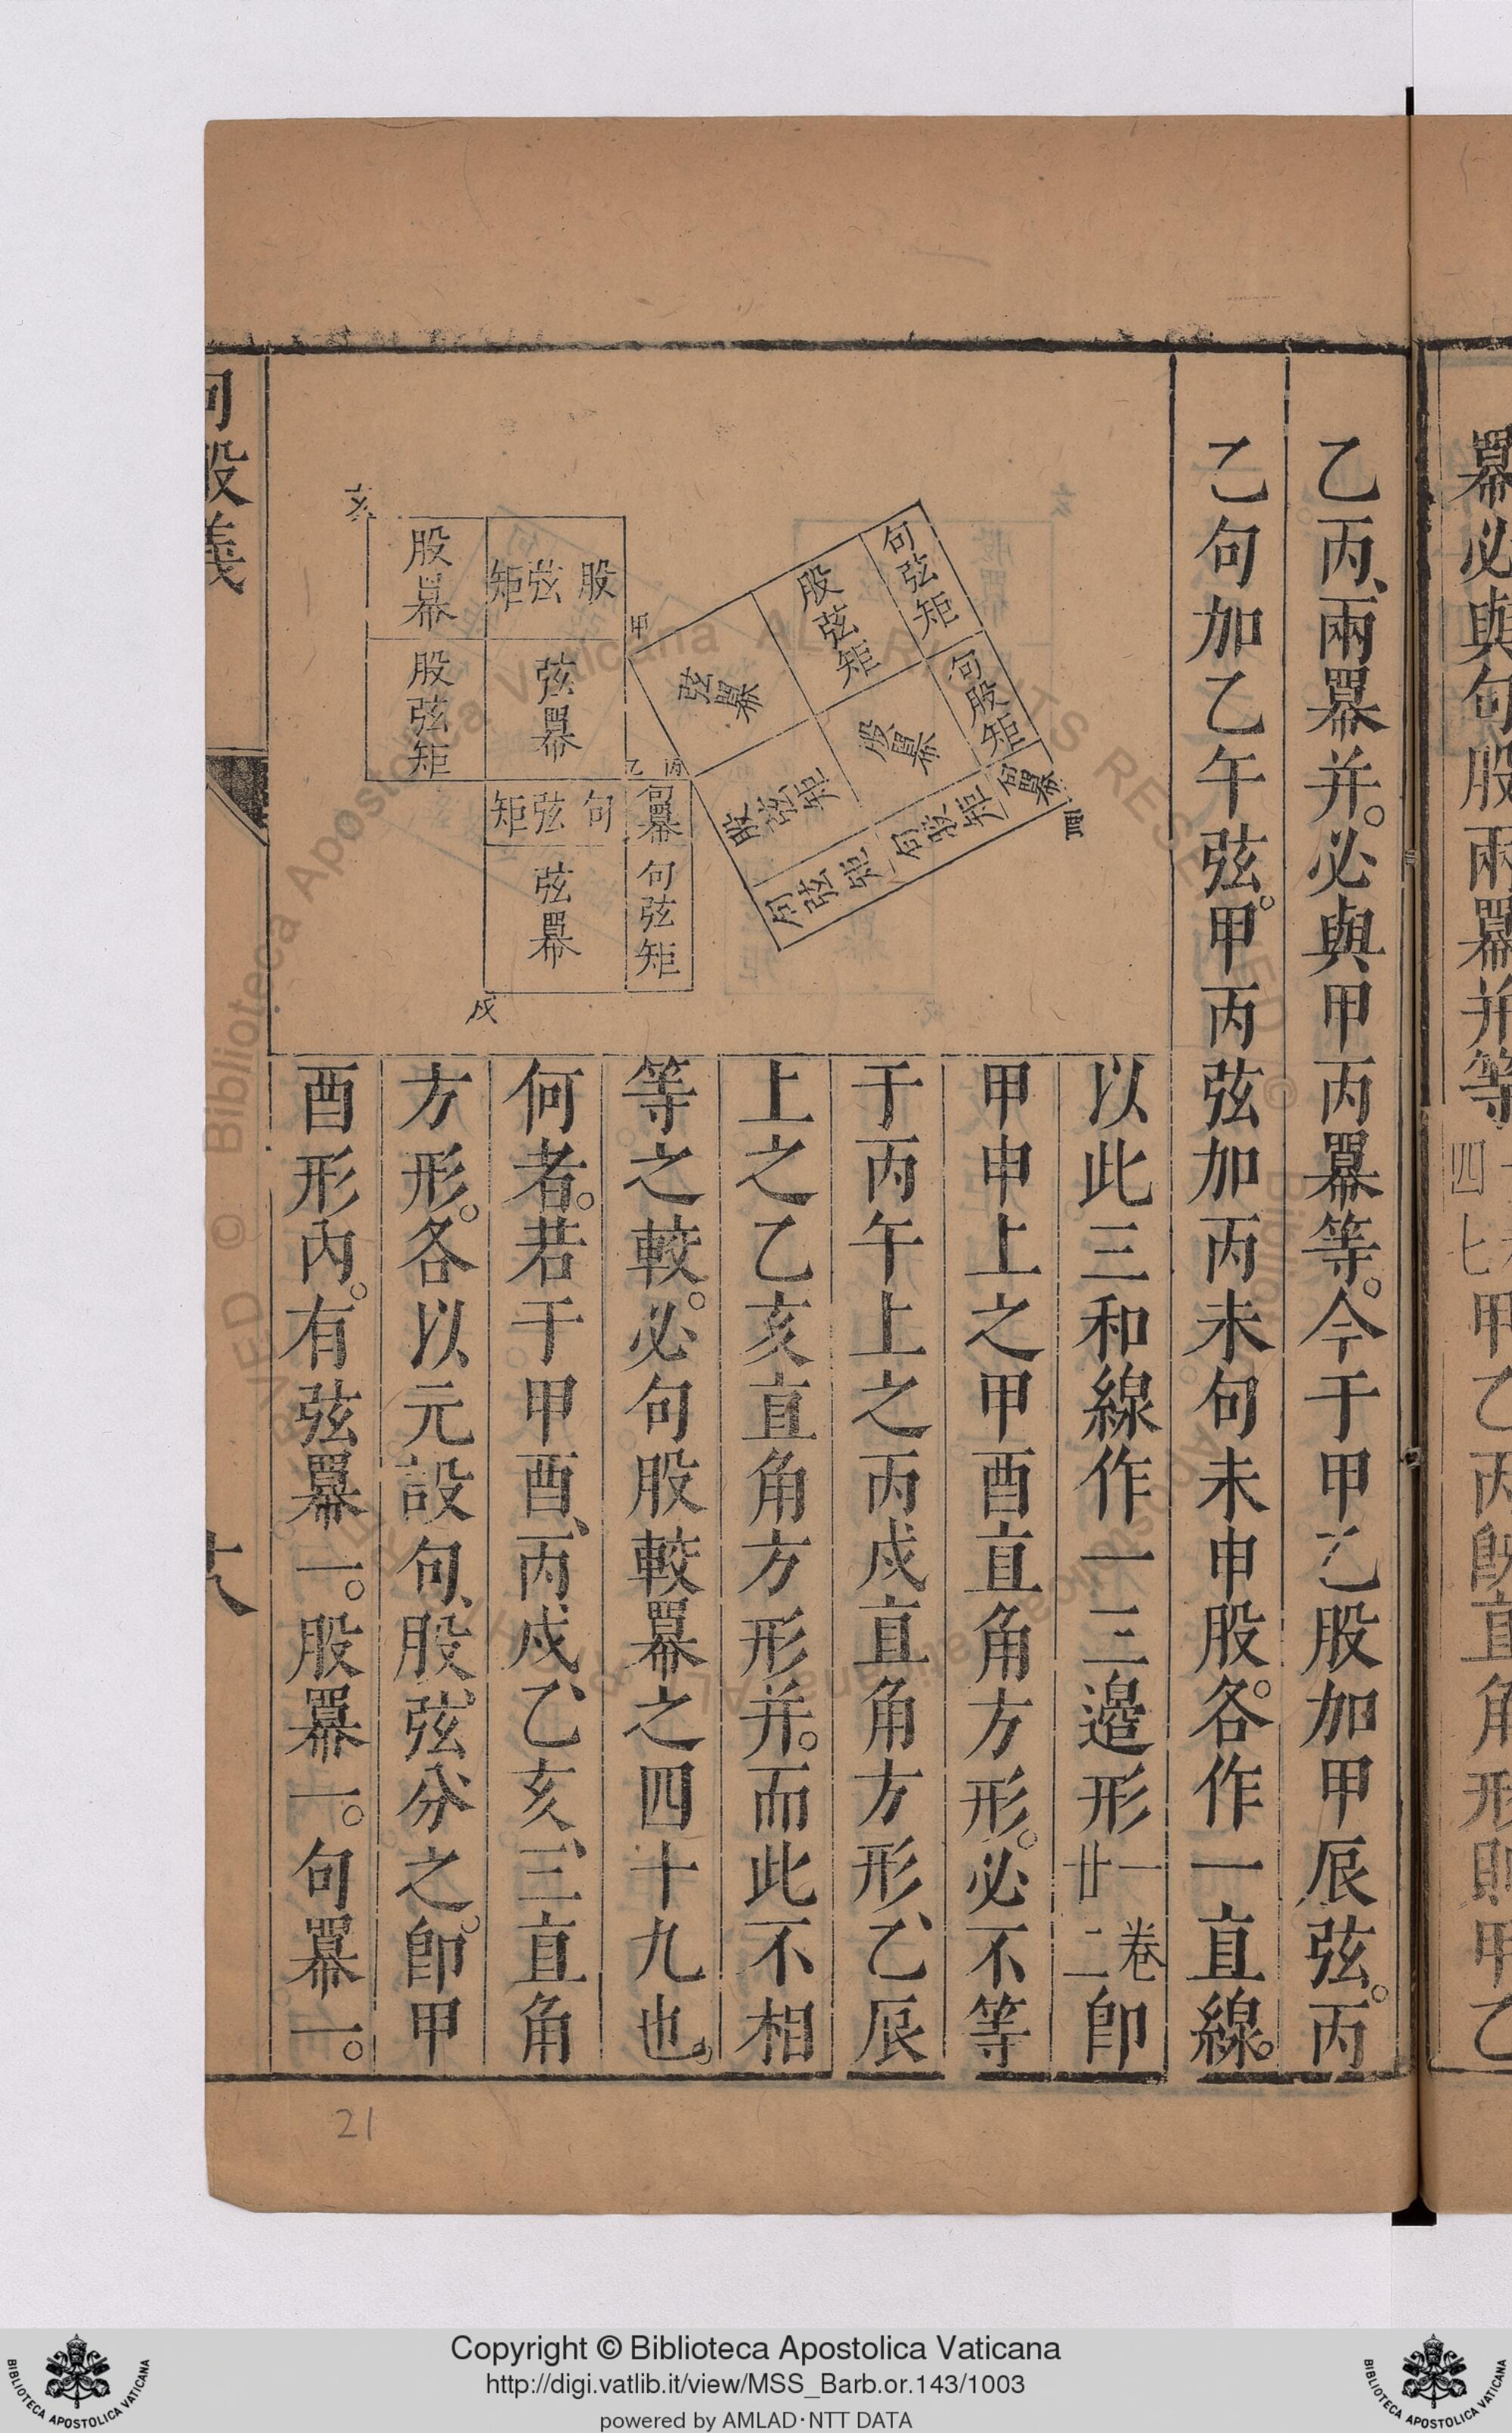 冪必與句股兩冪并等
四七
甲乙丙既直角形則甲乙
乙丙、兩冪并。必與甲丙冪等。今于甲乙股加甲辰弦。丙
乙句加乙午弦。甲丙弦加丙未句未申股。各作一直線。
以此三和線作一三邉形一卷廿二卽
甲申上之甲酉直角方形。必不等
于丙午上之丙戍直角方形、乙辰
上之乙亥直角方形并。而此不相
等之較。必句股較冪之四十九也。
何者。若于甲酉、丙戍、乙亥、三直角
方形。各以元設句、股、弦、分之。卽甲
酉形內。有弦冪一。股冪一。句冪一。
句弦矩
股弦矩
弦冪
句股矩
股冪
股弦矩
句冪
句股矩
句弦矩
酉
甲
乙
丙
股弦矩
股冪
弦冪
股弦矩
句冪
句弦矩
句弦矩
弦冪
亥
戍
句股義
21
Copyright © Biblioteca Apostolica Vaticana
http://digi.vatlib.it/view/MSS_Barb.or.143/1003
powered by AMLAD·NTT DATA
BIBLIOTECA APOSTOLICA VATICANA
BIBLIOTECA APOSTOLICA VATICANA